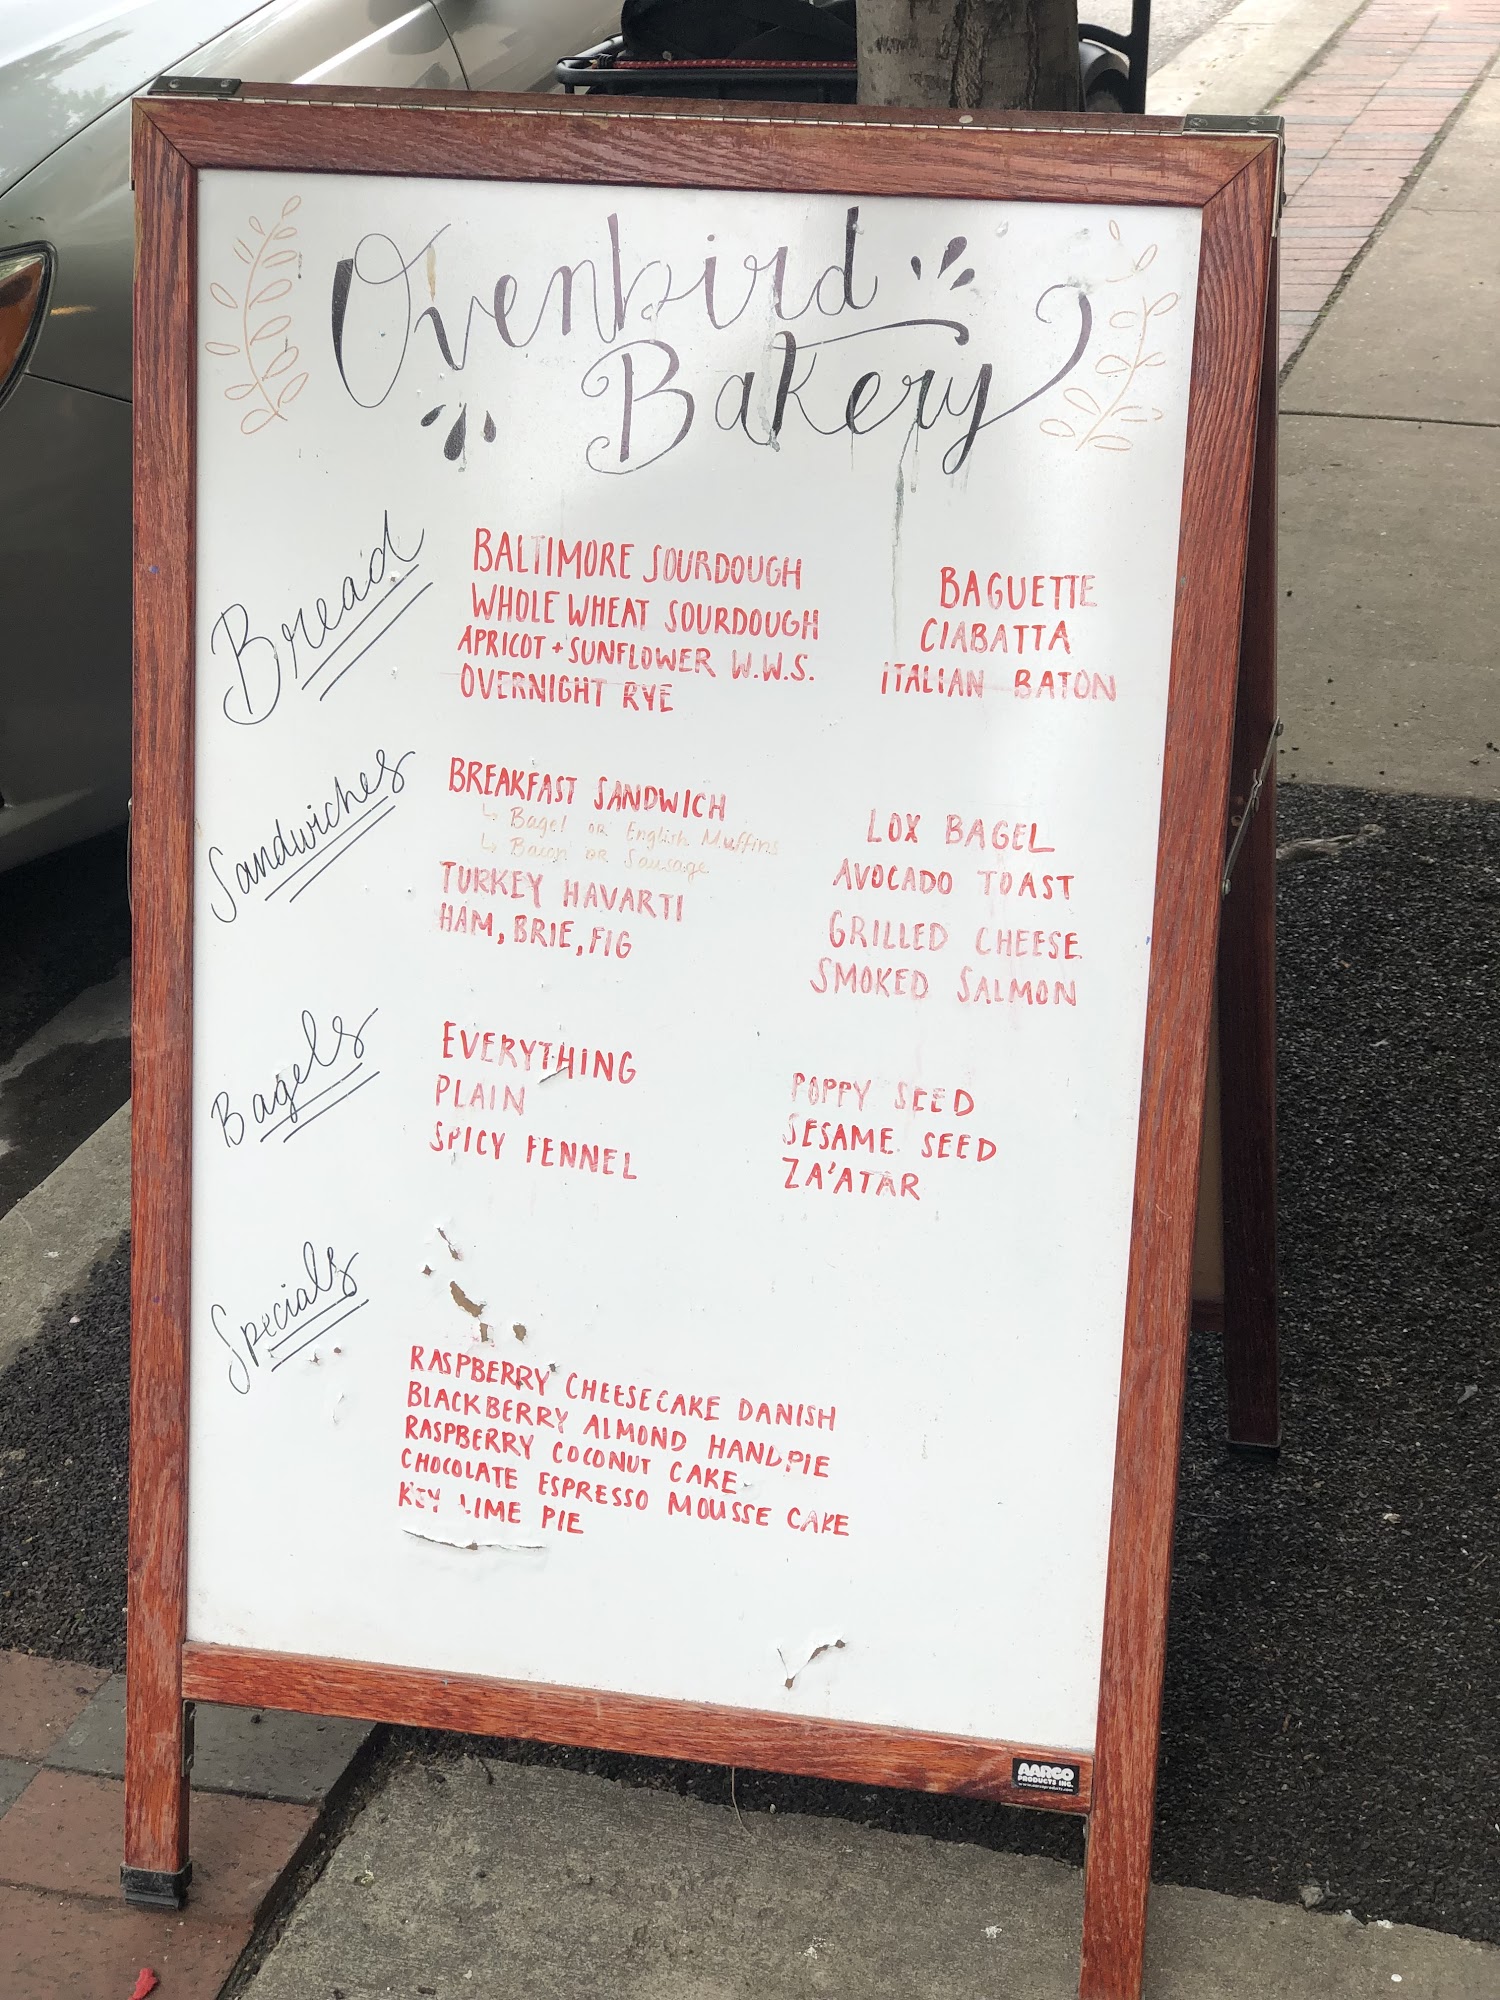 Ovenbird
Bakery
Bread
BALTIMORE SOURDOUGH
WHOLE WHEAT SOURDOUGH
APRICOT + SUNFLOWER W.W.S.
OVERNIGHT RYE
BAGUETTE
CIABATTA
ITALIAN BATON
Sandwiches
BREAKFAST SANDWICH
↳ Bagel or English Muffins
↳ Bacon or Sausage
TURKEY HAVARTI
HAM, BRIE, FIG
LOX BAGEL
AVOCADO TOAST
GRILLED CHEESE
SMOKED SALMON
Bagels
EVERYTHING
PLAIN
SPICY FENNEL
POPPY SEED
SESAME SEED
ZA'ATAR
Specials
RASPBERRY CHEESECAKE DANISH
BLACKBERRY ALMOND HANDPIE
RASPBERRY COCONUT CAKE
CHOCOLATE ESPRESSO MOUSSE CAKE
KEY LIME PIE
AARCO
PRODUCTS INC.